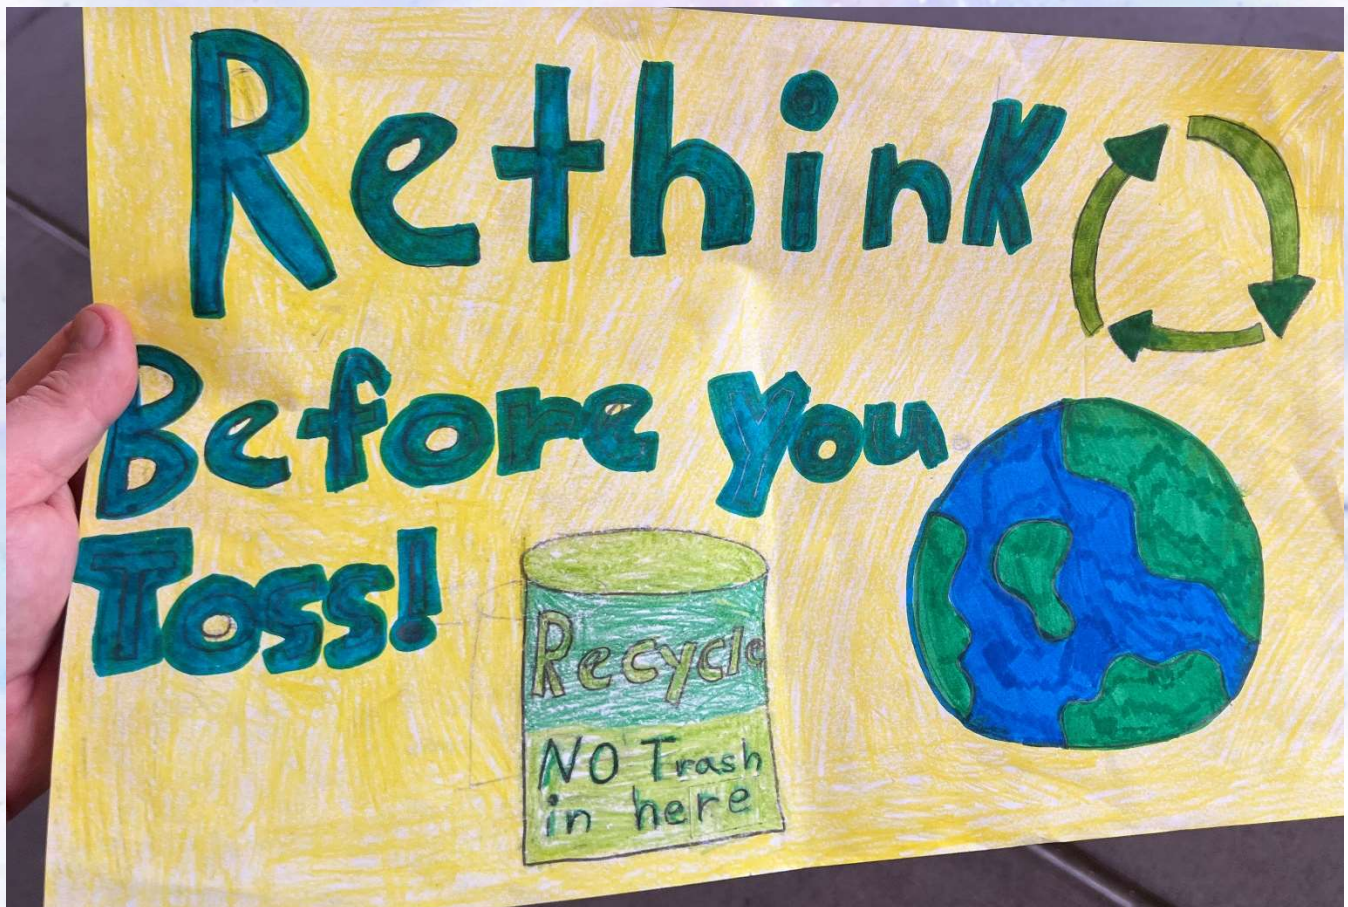 Rethink
Before you
Toss!
Recycle
NO Trash
in here